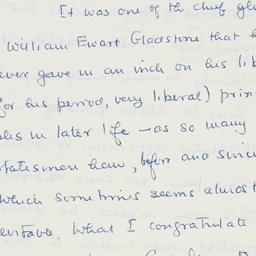 It was one of the chief gl
William Ewart Gladstone that h
ever gave in an inch on his lib
for his period, very liberal) prin
les in later life – as so many
tatesmen have, before and since
which sometimes seems almost
evitable. What I congratulate